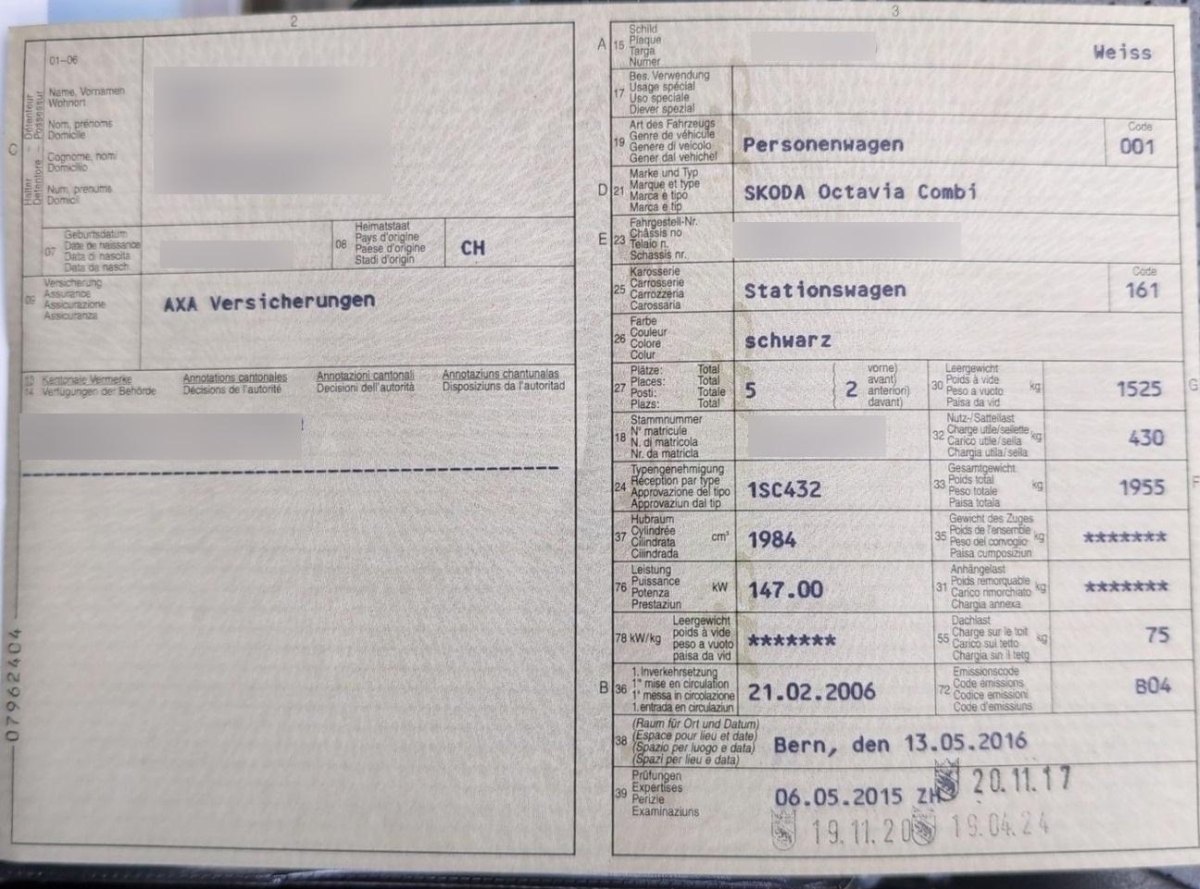 2
01-06
C
Halter - Détenteur
Detentore - Possessur
Name, Vornamen
Wohnort
Nom, prénoms
Domicile
Cognome, nomi
Domicilio
Num, prenums
Domicil
07
Geburtsdatum
Date de naissance
Data di nascita
Data da nasch.
08
Heimatstaat
Pays d'origine
Paese d'origine
Stadi d'origin
CH
09
Versicherung
Assurance
Assicurazione
Assicuranza
AXA Versicherungen
13 Kantonale Vermerke Annotations cantonales Annotazioni cantonali Annotaziuns chantunalas
14 Verfügungen der Behörde Décisions de l'autorité Decisioni dell'autorità Disposiziuns da l'autoritad
07962404
3
A 15
Schild
Plaque
Targa
Numer
Weiss
17
Bes. Verwendung
Usage spécial
Uso speciale
Diever spezial
19
Art des Fahrzeugs
Genre de véhicule
Genere di veicolo
Gener dal vehichel
Personenwagen
Code
001
D 21
Marke und Typ
Marque et type
Marca e tipo
Marca e tip
SKODA Octavia Combi
E 23
Fahrgestell-Nr.
Châssis no
Telaio n.
Schassis nr.
25
Karosserie
Carrosserie
Carrozzeria
Carossaria
Stationswagen
Code
161
26
Farbe
Couleur
Colore
Colur
schwarz
27
Plätze: Total
Places: Total
Posti: Totale
Plazs: Total
5
2
vorne)
avant)
anteriori)
davant)
30
Leergewicht
Poids à vide
Peso a vuoto
Paisa da vid
kg
1525
G
18
Stammnummer
N° matricule
N. di matricola
Nr. da matricla
32
Nutz-/Sattellast
Charge utile/sellette
Carico utile/sella
Chargia utila/sella
kg
430
24
Typengenehmigung
Réception par type
Approvazione del tipo
Approvaziun dal tip
1SC432
33
Gesamtgewicht
Poids total
Peso totale
Paisa totala
kg
1955
F
37
Hubraum
Cylindrée
Cilindrata
Cilindrada
cm³
1984
35
Gewicht des Zuges
Poids de l'ensemble
Peso del convoglio
Paisa cumposiziun
kg
*******
76
Leistung
Puissance
Potenza
Prestaziun
kW
147.00
31
Anhängelast
Poids remorquable
Carico rimorchiato
Chargia annexa
kg
*******
78 kW/kg
Leergewicht
poids à vide
peso a vuoto
paisa da vid
*******
55
Dachlast
Charge sur le toit
Carico sul tetto
Chargia sin il tetg
kg
75
B 36
1. Inverkehrsetzung
1re mise en circulation
1a messa in circolazione
1. entrada en circulaziun
21.02.2006
72
Emissionscode
Code émissions
Codice emissioni
Code d'emissiuns
B04
38
(Raum für Ort und Datum)
(Espace pour lieu et date)
(Spazio per luogo e data)
(Spazi per lieu e data)
Bern, den 13.05.2016
39
Prüfungen
Expertises
Perizie
Examinaziuns
06.05.2015 ZH
20.11.17
19.11.20
19.04.24